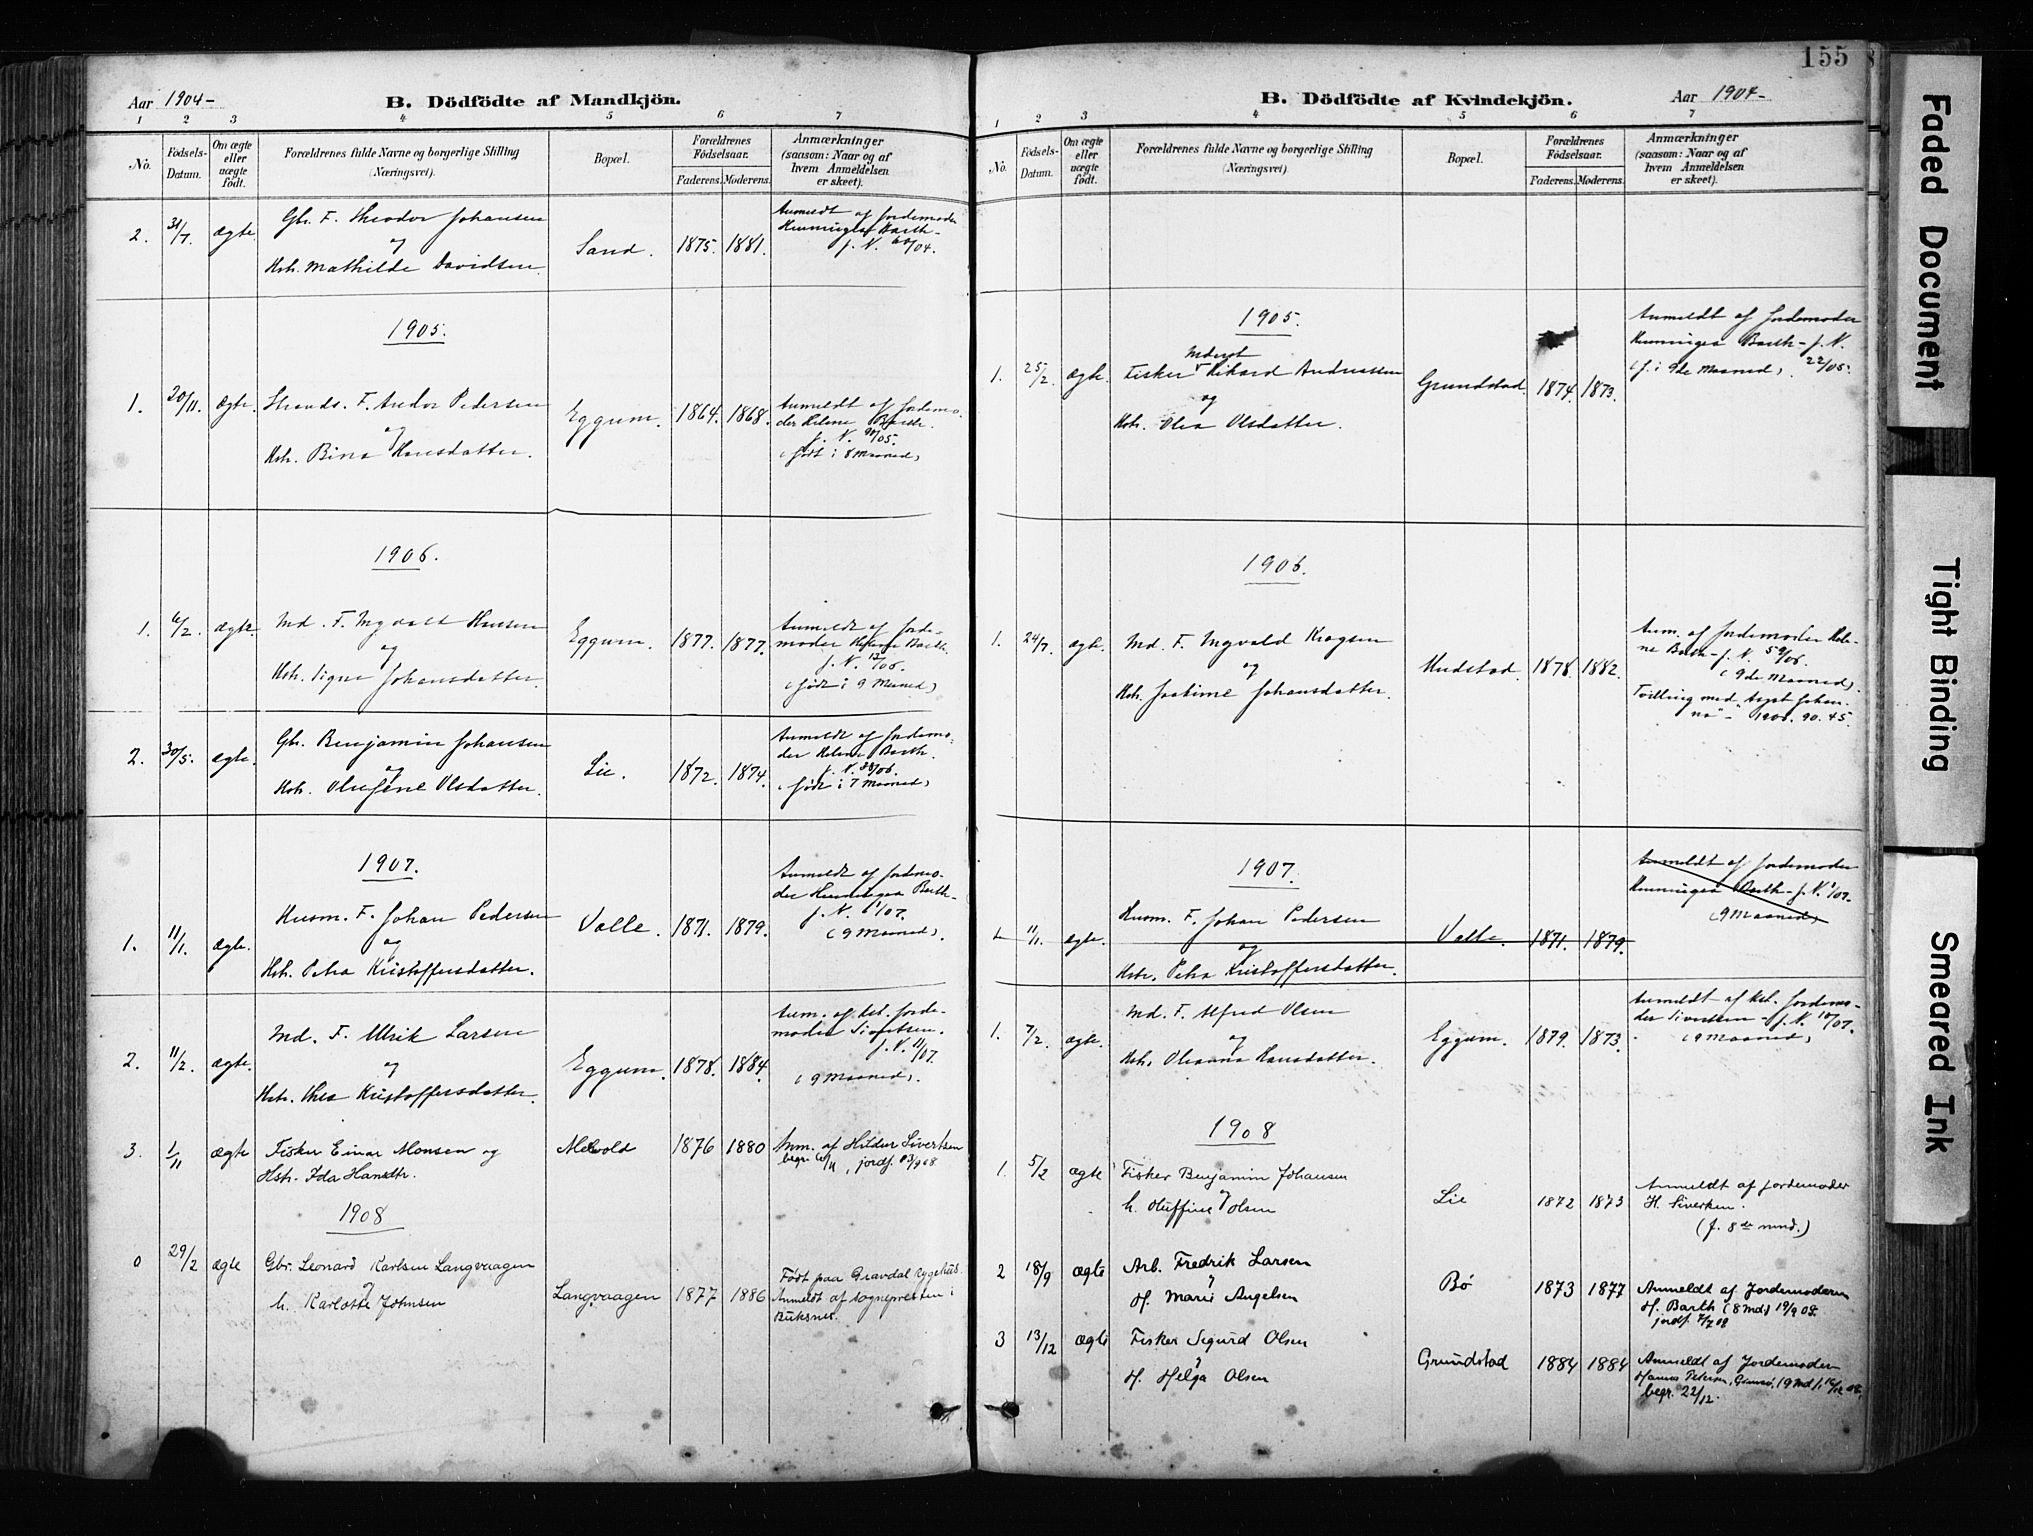 155
Aar 1904-
B. Dödfödte af Mandkjön.
1 2 3 4 5 6 7
No.
Födsels-Datum.
Om ægte eller uægte født.
Forældrenes fulde Navne og borgerlige Stilling
(Næringsvei).
Bopæl.
Forældrenes Fødselsaar.
Faderens. Moderens.
Anmærkninger
(saasom: Naar og af
hvem Anmeldelsen
er skeet).
2. 31/7. ægte. Gbr. F. Theodor Johansen
og
Hstr. Mathilde Davidsen.
Sand. 1875. 1881.
Anmeldt af Jordemoder
Henningea Barth-
1905.
1. 20/11. ægte. Strands. F. Andor Pedersen
og
Hstr. Bina Hansdatter.
Eggum. 1864. 1868.
Anmeldt af Jordemo-
der Helene Barth.
j. N. 90/05.
(født i 8 Maaned)
1906.
1. 6/2. ægte. Md. F. Ingvald Hansen
og
Hstr. Signe Johansdatter.
Eggum. 1877. 1877.
Anmeldt af Jorde-
moder Helene Barth.
j. N. 12/06.
(født i 9 Maaned)
2. 30/5. ægte. Gbr. Benjamin Johansen
og
Hstr. Olufine Olsdatter.
Lie. 1872. 1874.
Anmeldt af Jordemo-
der Helene Barth.
j. N. 38/06.
(født i 7 Maaned)
1907.
1. 11/1. ægte. Husm. F. Johan Pedersen
og
Hstr. Petra Kristoffersdatter.
Valle. 1871. 1879.
Anmeldt af Jordmo-
der Henningea Barth-
(9 Maaned).
2. 11/2. ægte. Md. F. Ulrik Larsen
og
Hstr. Thea Kristoffersdatter.
Eggum. 1878. 1884.
Anm. af Jorde-
moder Sivertsen.
j. N. 11/07.
(9 Maaned).
3. 1/11 ægte Fisker Einar Monsen og
Hstr. Ida Hansdtr.
Mervold 1876 1880
Anm. af Hildur Sivertsen
1908
0 29/2 ægte Gbr. Leonard Karlsen Langvaagen
og
h. Karlotte Johnsen
Langvaagen 1877 1886
Født paa Gravdal sygehus.
Anmeldt af sognepresten i
Buksnes.
B. Dödfödte af Kvindekjön.
Aar 1904-
1 2 3 4 5 6 7
No.
Födsels-Datum.
Om ægte eller uægte født.
Forældrenes fulde Navne og borgerlige Stilling
(Næringsvei).
Bopæl.
Forældrenes Fødselsaar.
Faderens. Moderens.
Anmærkninger
(saasom: Naar og af
hvem Anmeldelsen
er skeet).
1905.
1. 25/2. ægte. Fisker Rikard Andreassen
og
Hstr. Olea Olsdatter.
Grundstad. 1874. 1873.
Anmeldt af Jordemoder
Henningea Barth- j. N.
22/05.
(f. i 9de Maaned).
1906.
1. 24/7. ægte. Md. F. Ingvald Krogsen
og
Hstr. Johansdatter.
Hudstad. 1878. 1882.
Anm. af Jordemoder Hele-
ne Barth- j. N. 59/06.
(9de Maaned).
Tvilling med
1906. 90. 45.
1907.
1. 11/1. ægte. Husm. F. Johan Pedersen
og
Hstr. Petra Kristoffersdatter.
Valle. 1871. 1879.
Anmeldt af Jordemoder
Henningea Barth- j. N. 1/07.
(9 Maaned)
1. 7/2. ægte. Md. F. Alfred Olsen
og
Hstr. Oleanna Hansdatter.
Eggum. 1879. 1873.
Anmeldt af Jordemo-
der Sivertsen- j. N. 10/07.
(9 Maaned)
1908
1. 5/2 ægte Fisker Benjamin Johansen
og
h. Oluffine Olsen
Lie 1872 1873
Anmeldt af jordemoder
H. Sivertsen.
(f. 8de mnd.)
2 18/9 ægte Arb. Fredrik Larsen
og
H. Marie Angelsen
Bø 1873 1877
Anmeldt af Jordemoderen
H. Barth (8 Md) 19/9 08.
3 13/12 ægte Fisker Sigurd Olsen
og
H. Helga Olsen
Grundstad 1884 1884
Anmeldt af Jordemoder
begr. 22/12.
Faded Document
Tight Binding
Smeared Ink